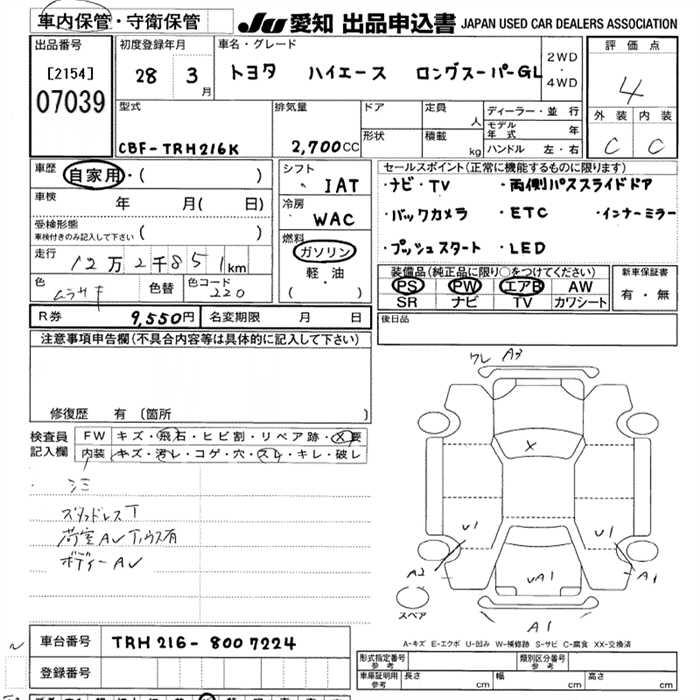 車内保管・守衛保管
JU 愛知 出品申込書 JAPAN USED CAR DEALERS ASSOCIATION
出品番号
[2154]
07039
初度登録年月
28 3月
車名・グレード
トヨタ ハイエース ロングスーパーGL
2WD
・
4WD
評価点
4
外装 内装
C C
型式
CBF-TRH216K
排気量
2,700CC
ドア
形状
定員 人
積載 kg
ディーラー・並行
モデル年式 年
ハンドル 左・右
車歴
自家用・( )
車検 年 月( 日)
受検形態
車検付きのみ記入して下さい ( )
走行 12万2千851km
色 ムラサキ 色替 色コード 220
シフト
IAT
冷房
WAC
燃料
ガソリン
軽・油
( )
セールスポイント(正常に機能するものに限ります)
・ナビ・TV ・両側パススライドドア
・バックカメラ ・ETC ・インナーミラー
・プッシュスタート ・LED
装備品(純正品に限り○をつけてください)
PS PW エアB AW
SR ナビ TV カワシート
新車保証書
有・無
R券 9,550円 名変期限 月 日
後日品
注意事項申告欄(不具合内容等は具体的に記入して下さい)
修復歴 有(箇所 )
検査員記入欄
FW キズ・飛石・ヒビ割・リペア跡・X要
内装 キズ・汚レ・コゲ・穴・スレ・キレ・破レ
シミ
スタッドレスT
荷室AV Tハウス有
ボディーAV
ワレ A3
X
U1 U1
A2 UA1 A1
スペア
A1
A-キズ E-エクボ U-凹み W-補修跡 S-サビ C-腐食 XX-交換済
車台番号 TRH216-8007224
登録番号
形式指定番号
参考
類別区分番号
参考
車庫証明用
参考
長さ cm 幅 cm 高さ cm